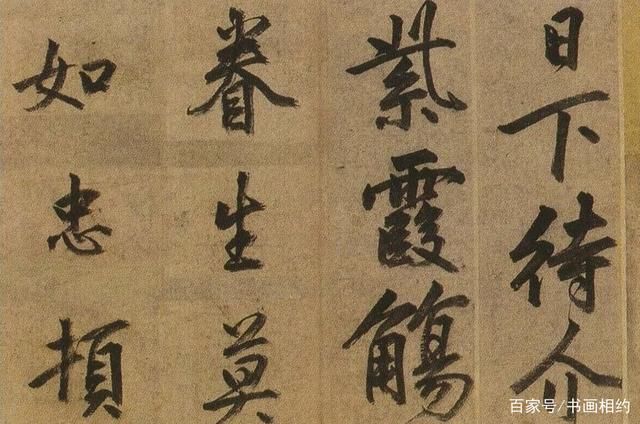 日下待介
紫霞觴
眷生莫
如忠頓
百家号/书画相约